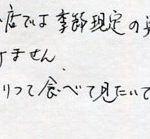 店では季節規定の
ません
って食べて見たいで